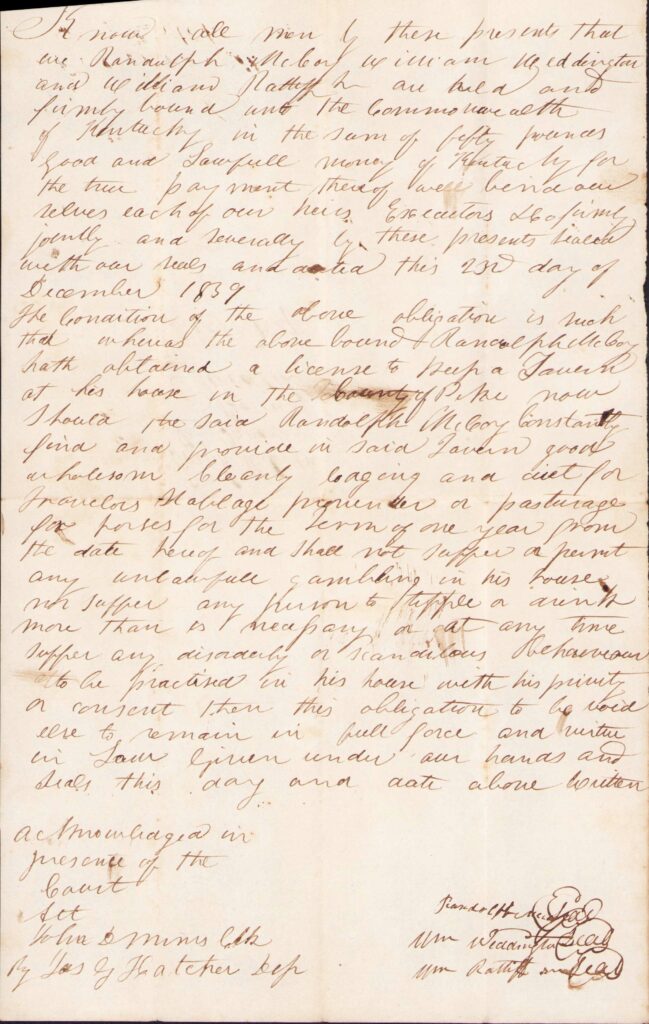 Know all men by these presents that
we Randolph McCoy William Weddington
and William Ratliff Jr are held and
firmly bound unto the Commonwealth
of Kentucky in the sum of fifty pounds
good and Lawfull money of Kentucky for
the true payment thereof we bind our
selves each of our heirs Executors &c firmly
jointly and severally by these presents sealed
with our seals and dated this 23rd day of
December 1839
The Condition of the above obligation is such
that whereas the above bound Randolph McCoy
hath obtained a license to keep a Tavern
at his house in the County of Pike now
Should the said Randolph McCoy Constantly
find and provide in said Tavern good
wholesom Cleanly lodging and diet for
travelors Stablage provender or pasturage
for horses for the term of one year from
the date hereof and shall not suffer or permit
any unlawfull gambling in his house
nor suffer any person to tipple or drink
more than is necessary or at any time
suffer any disorderly or scandilous Behaveour
to be practised in his house with his privity
or consent then this obligation to be void
else to remain in full force and virtue
in Law Given under our hands and
seals this day and date above written
acknowledged in
presence of the
Court
Att
John D Mims Clk
By Jas G Hatcher Dep
Randolph McCoy Seal
Wm Weddington Seal
Wm Ratliff Seal